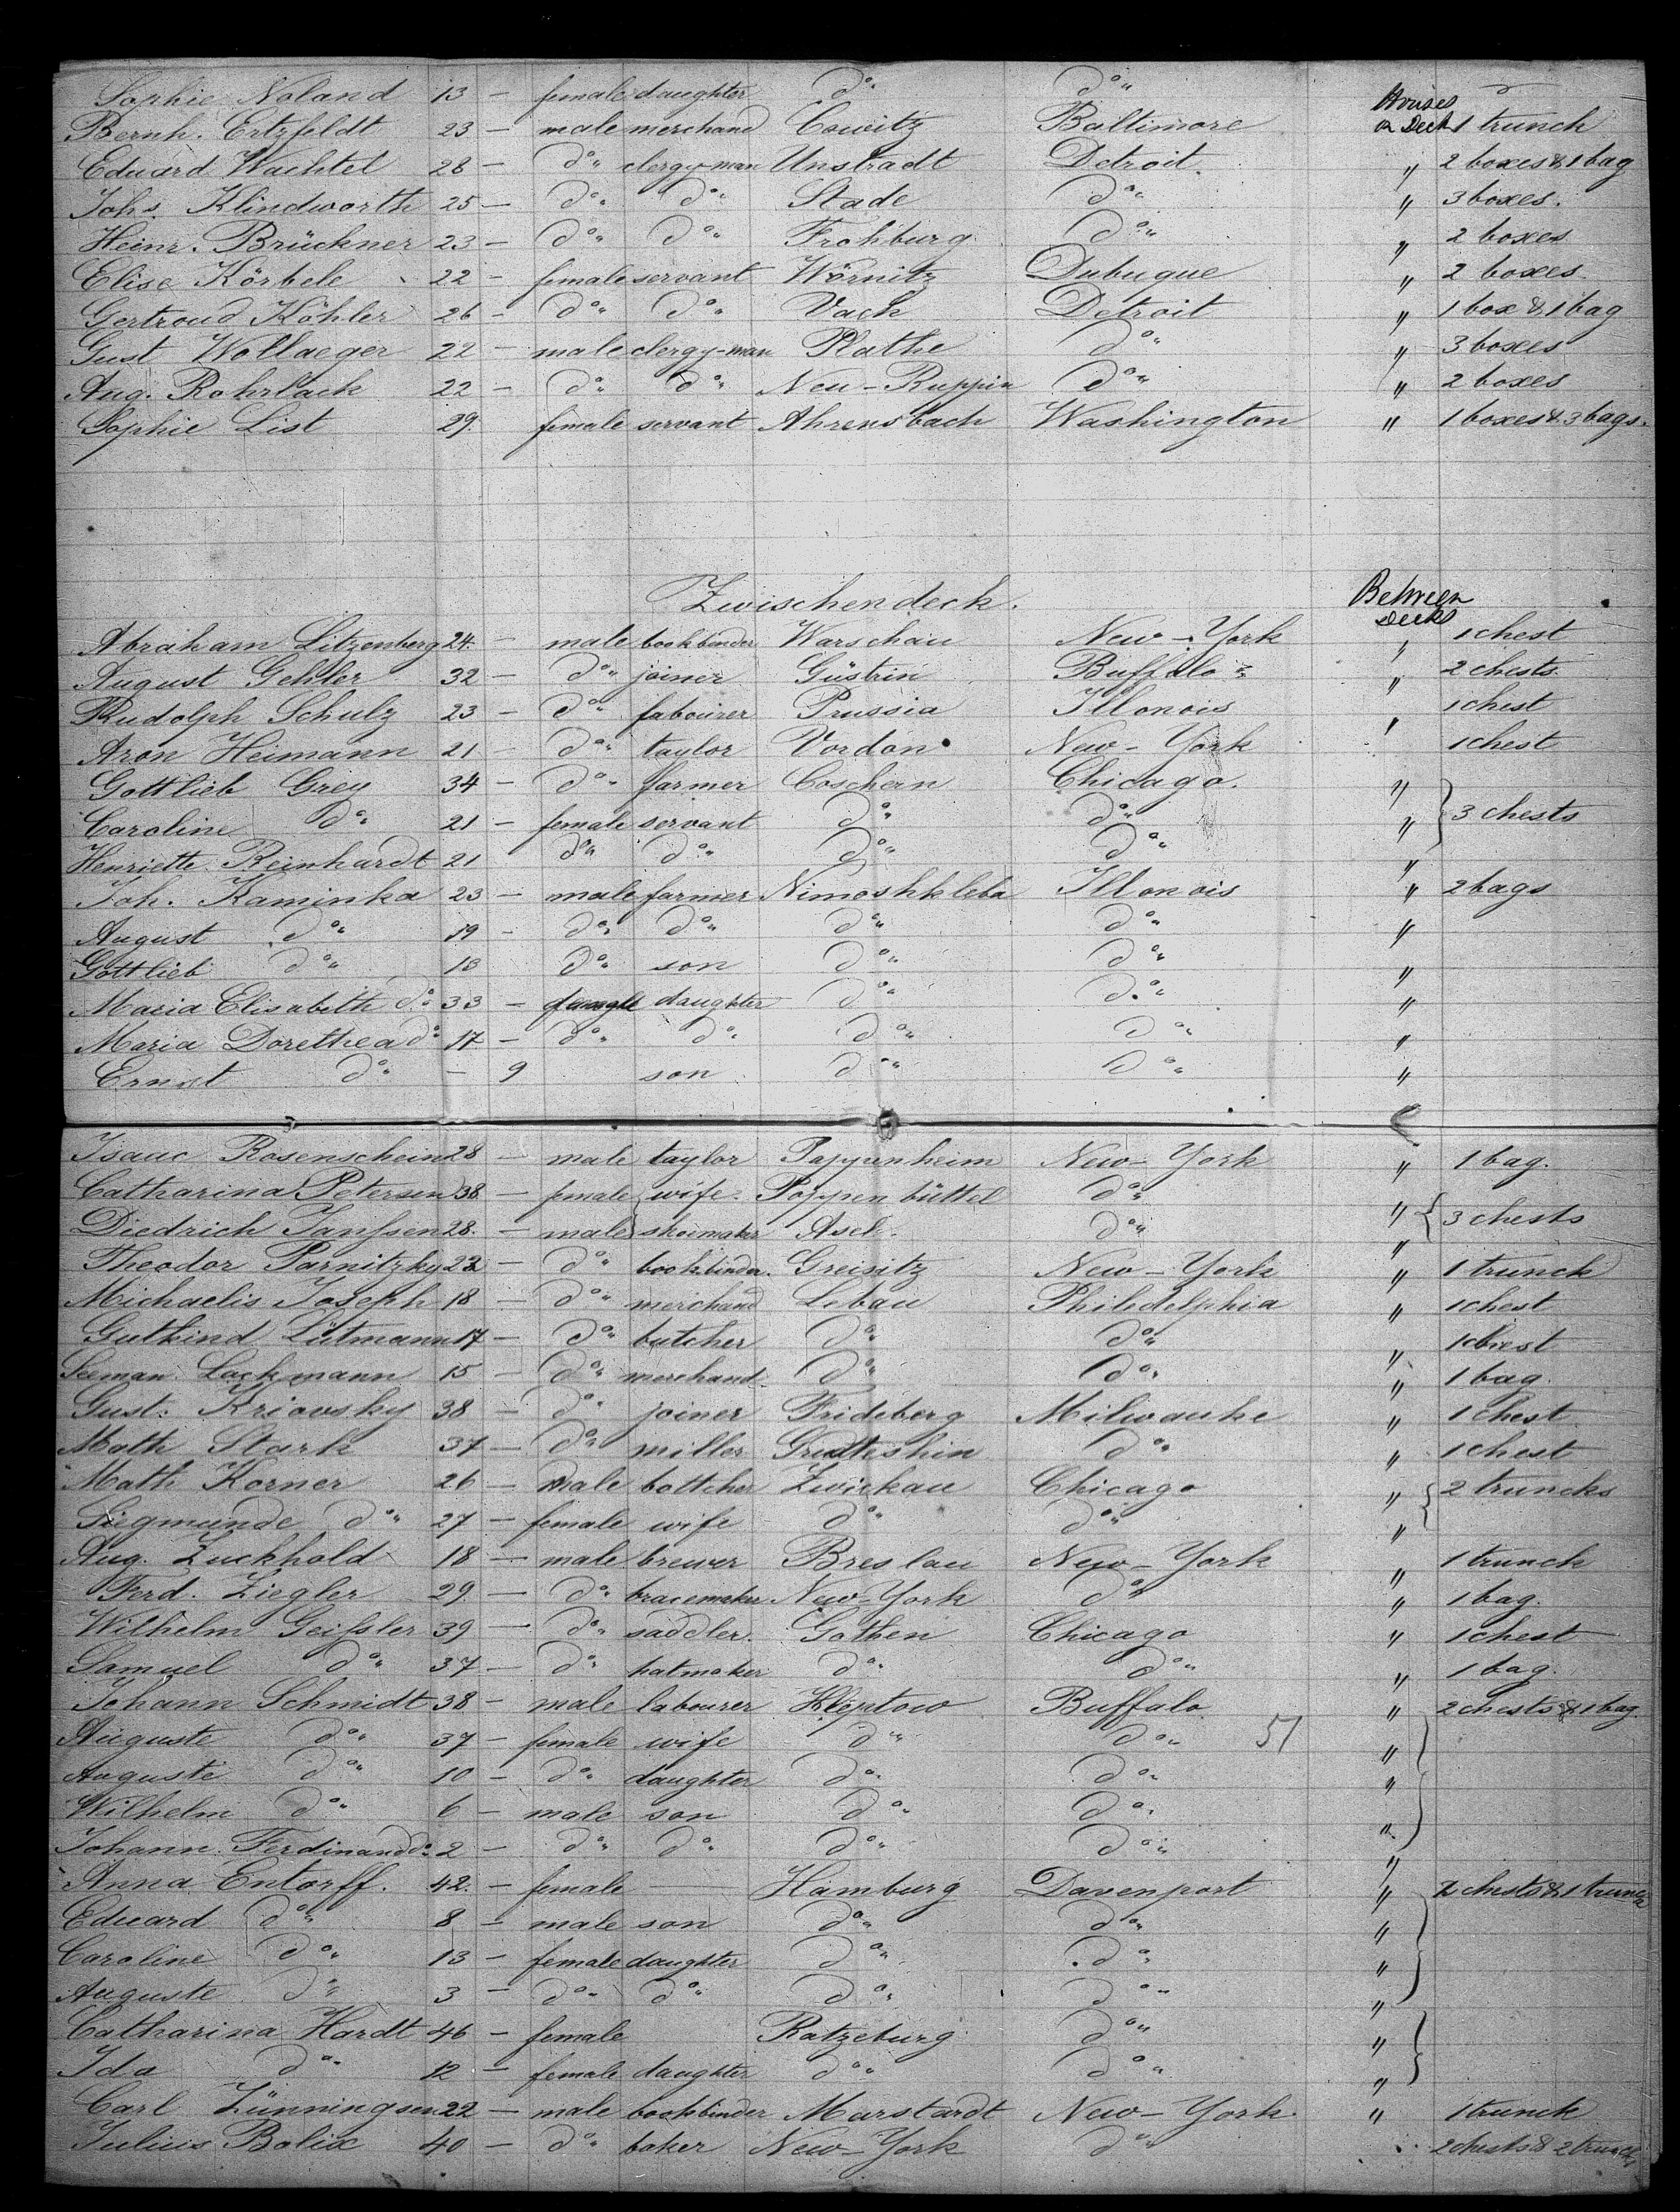 Sophie Noland 13 — female daughter do do
Bernh. Ertzfeldt 23 — male merchand Cowitz Baltimore Houses on Deck 1 trunck
Eduard Wachtel 28 — do clergy-man Unstradt Detroit. " 2 boxes & 1 bag
Johs. Klindworth 25 — do do Stade do " 3 boxes.
Heinr. Brückner 23 — do do Frohburg do " 2 boxes
Elise Körbele 22 — female servant Wörnitz Dubuque " 2 boxes
Gertroud Köhler 26 — do do Vach Detroit " 1 box & 1 bag
Gust Wollaeger 22 — male clergy-man Plathe do " 3 boxes
Aug. Rohrlack 22 — do do Neu-Ruppin do " 2 boxes
Sophie List 29. female servant Ahrensbach Washington " 1 boxes & 3 bags.
Zwischendeck. Between Decks
Abraham Litzenberg 24. — male bookbinder Warschau New-York " 1 chest
August Gehler 32 — do joiner Güstrin Buffalo " 2 chests.
Rudolph Schulz 23 — do labourer Prussia Illonois " 1 chest
Aron Heimann 21 — do taylor Vordon New-York 1 chest
Gottlieb Grey 34 — do farmer Coschern Chicago. "
Caroline do 21 — female servant do do " 3 chests
Henriette Reinhardt 21 do do do do "
Joh. Kaminka 23 — male farmer Nimoshkleba Illonois " 2 bags
August do 19 — do do do do "
Gottlieb do 18 do son do do "
Maria Elisabeth do 33 — female daughter do do "
Maria Dorethea do 17 — do do do do "
Ernst do — 9 son do do "
Isaac Rosenschein 28 — male taylor Pappenheim New-York " 1 bag.
Catharina Petersen 38 — female wife. Poppenbüttel do "
Diedrich Janssen 28. — male shoemaker Asel. do " 3 chests
Theodor Parnitzky 22 — do bookbinder. Greisitz New-York " 1 trunck
Michaelis Joseph 18 — do merchand Lobau Philedelphia " 1 chest
Gutkind Lütmann 17 — do butcher do do " 1 chest
Seeman Lackmann 15 — do merchand do do " 1 bag.
Gust. Kriovsky 38 — do joiner Frideberg Milwauke " 1 chest
Math Stark 37 — do miller do " 1 chest
Math Korner 26 — male bottcher Zwickau Chicago " 2 truncks
Siegmunde do 27 — female wife do do "
Aug. Zuckhold 18 — male brewer Breslau New-York " 1 trunck
Ferd. Ziegler 29. — do bracemaker New-York do " 1 bag.
Wilhelm Geissler 39 — do saddler. Gothen Chicago " 1 chest
Samuel do 37 — do hatmaker do do " 1 bag.
Johann Schmidt 38 — male labourer Kleptow Buffalo " 2 chests & 1 bag.
Auguste do 37 — female wife do do 51 "
Auguste do 10 — do daughter do do "
Wilhelm do 6 — male son do do "
Johann Ferdinand do 2 — do do do do "
Anna Entorff. 42. — female — Hamburg Davenport " 2 chests & 1 trunck
Eduard do 8 — male son do do "
Caroline do 13 — female daughter do do "
Auguste do 3 — do do do do "
Catharina Hardt 46 — female Ratzeburg do "
Ida do 12 — female daughter do do "
Carl Zünningsen 22 — male bookbinder Marstardt New-York. " 1 trunck
Julius Bolix 40 — do baker New-York do " 2 chests & 2 truncks